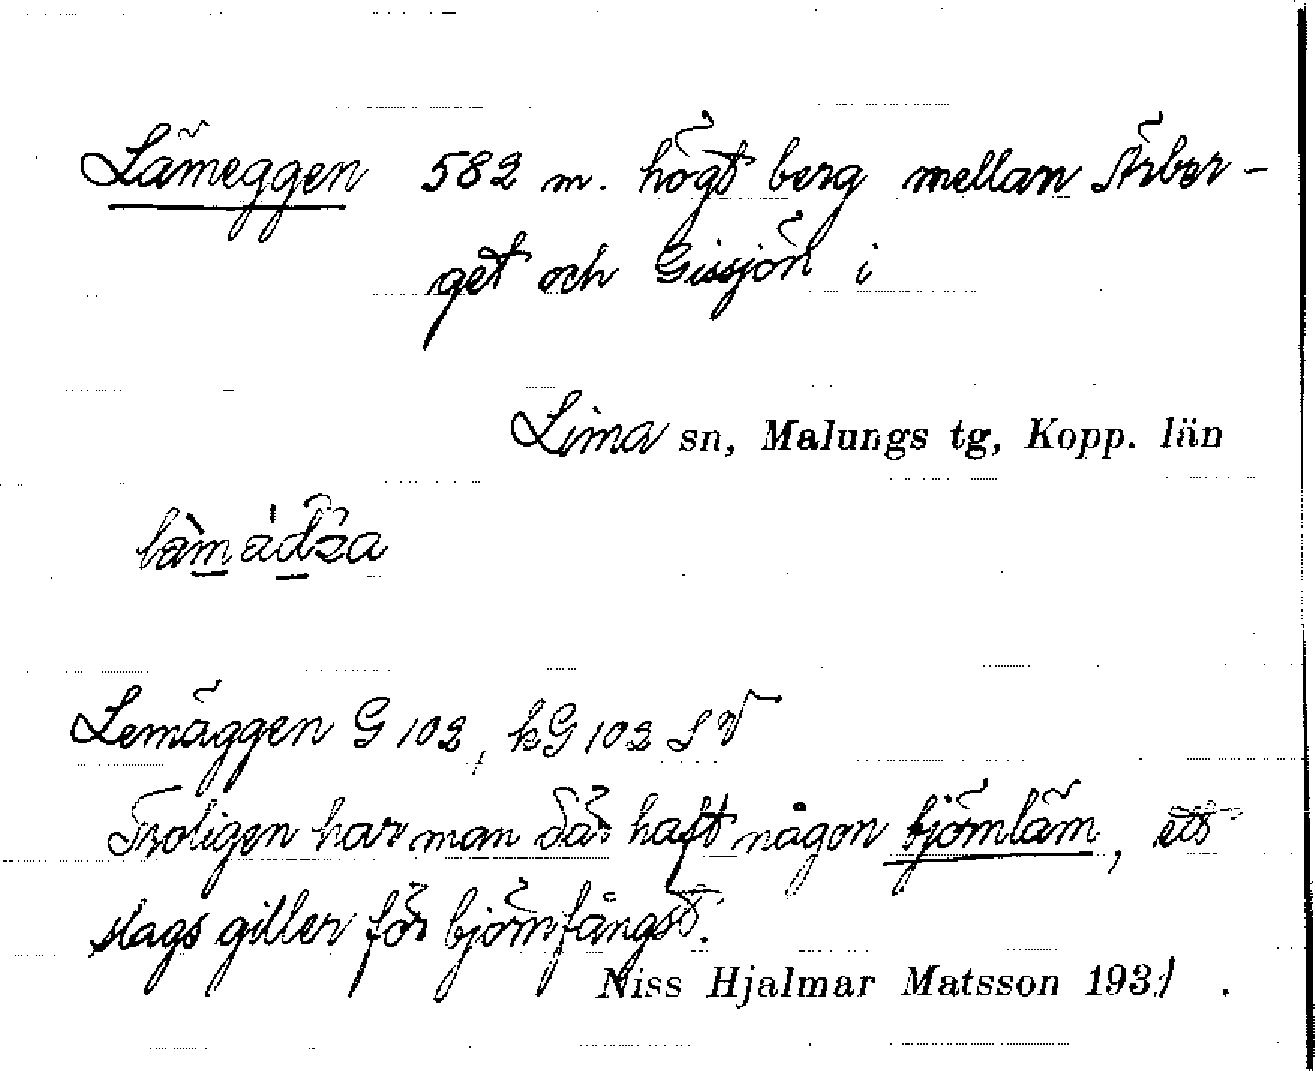 Lämeggen 582 m. högt berg mellan Ärber-
get och Gissjön i
Lima sn, Malungs tg, Kopp. län
Lemäggen G 102, kG 102 SV
Troligen har man där haft någon björnläm, ett
slags giller för björnfångst.
Niss Hjalmar Matsson 1931.